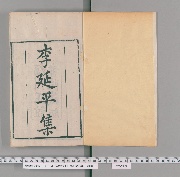 李延平集